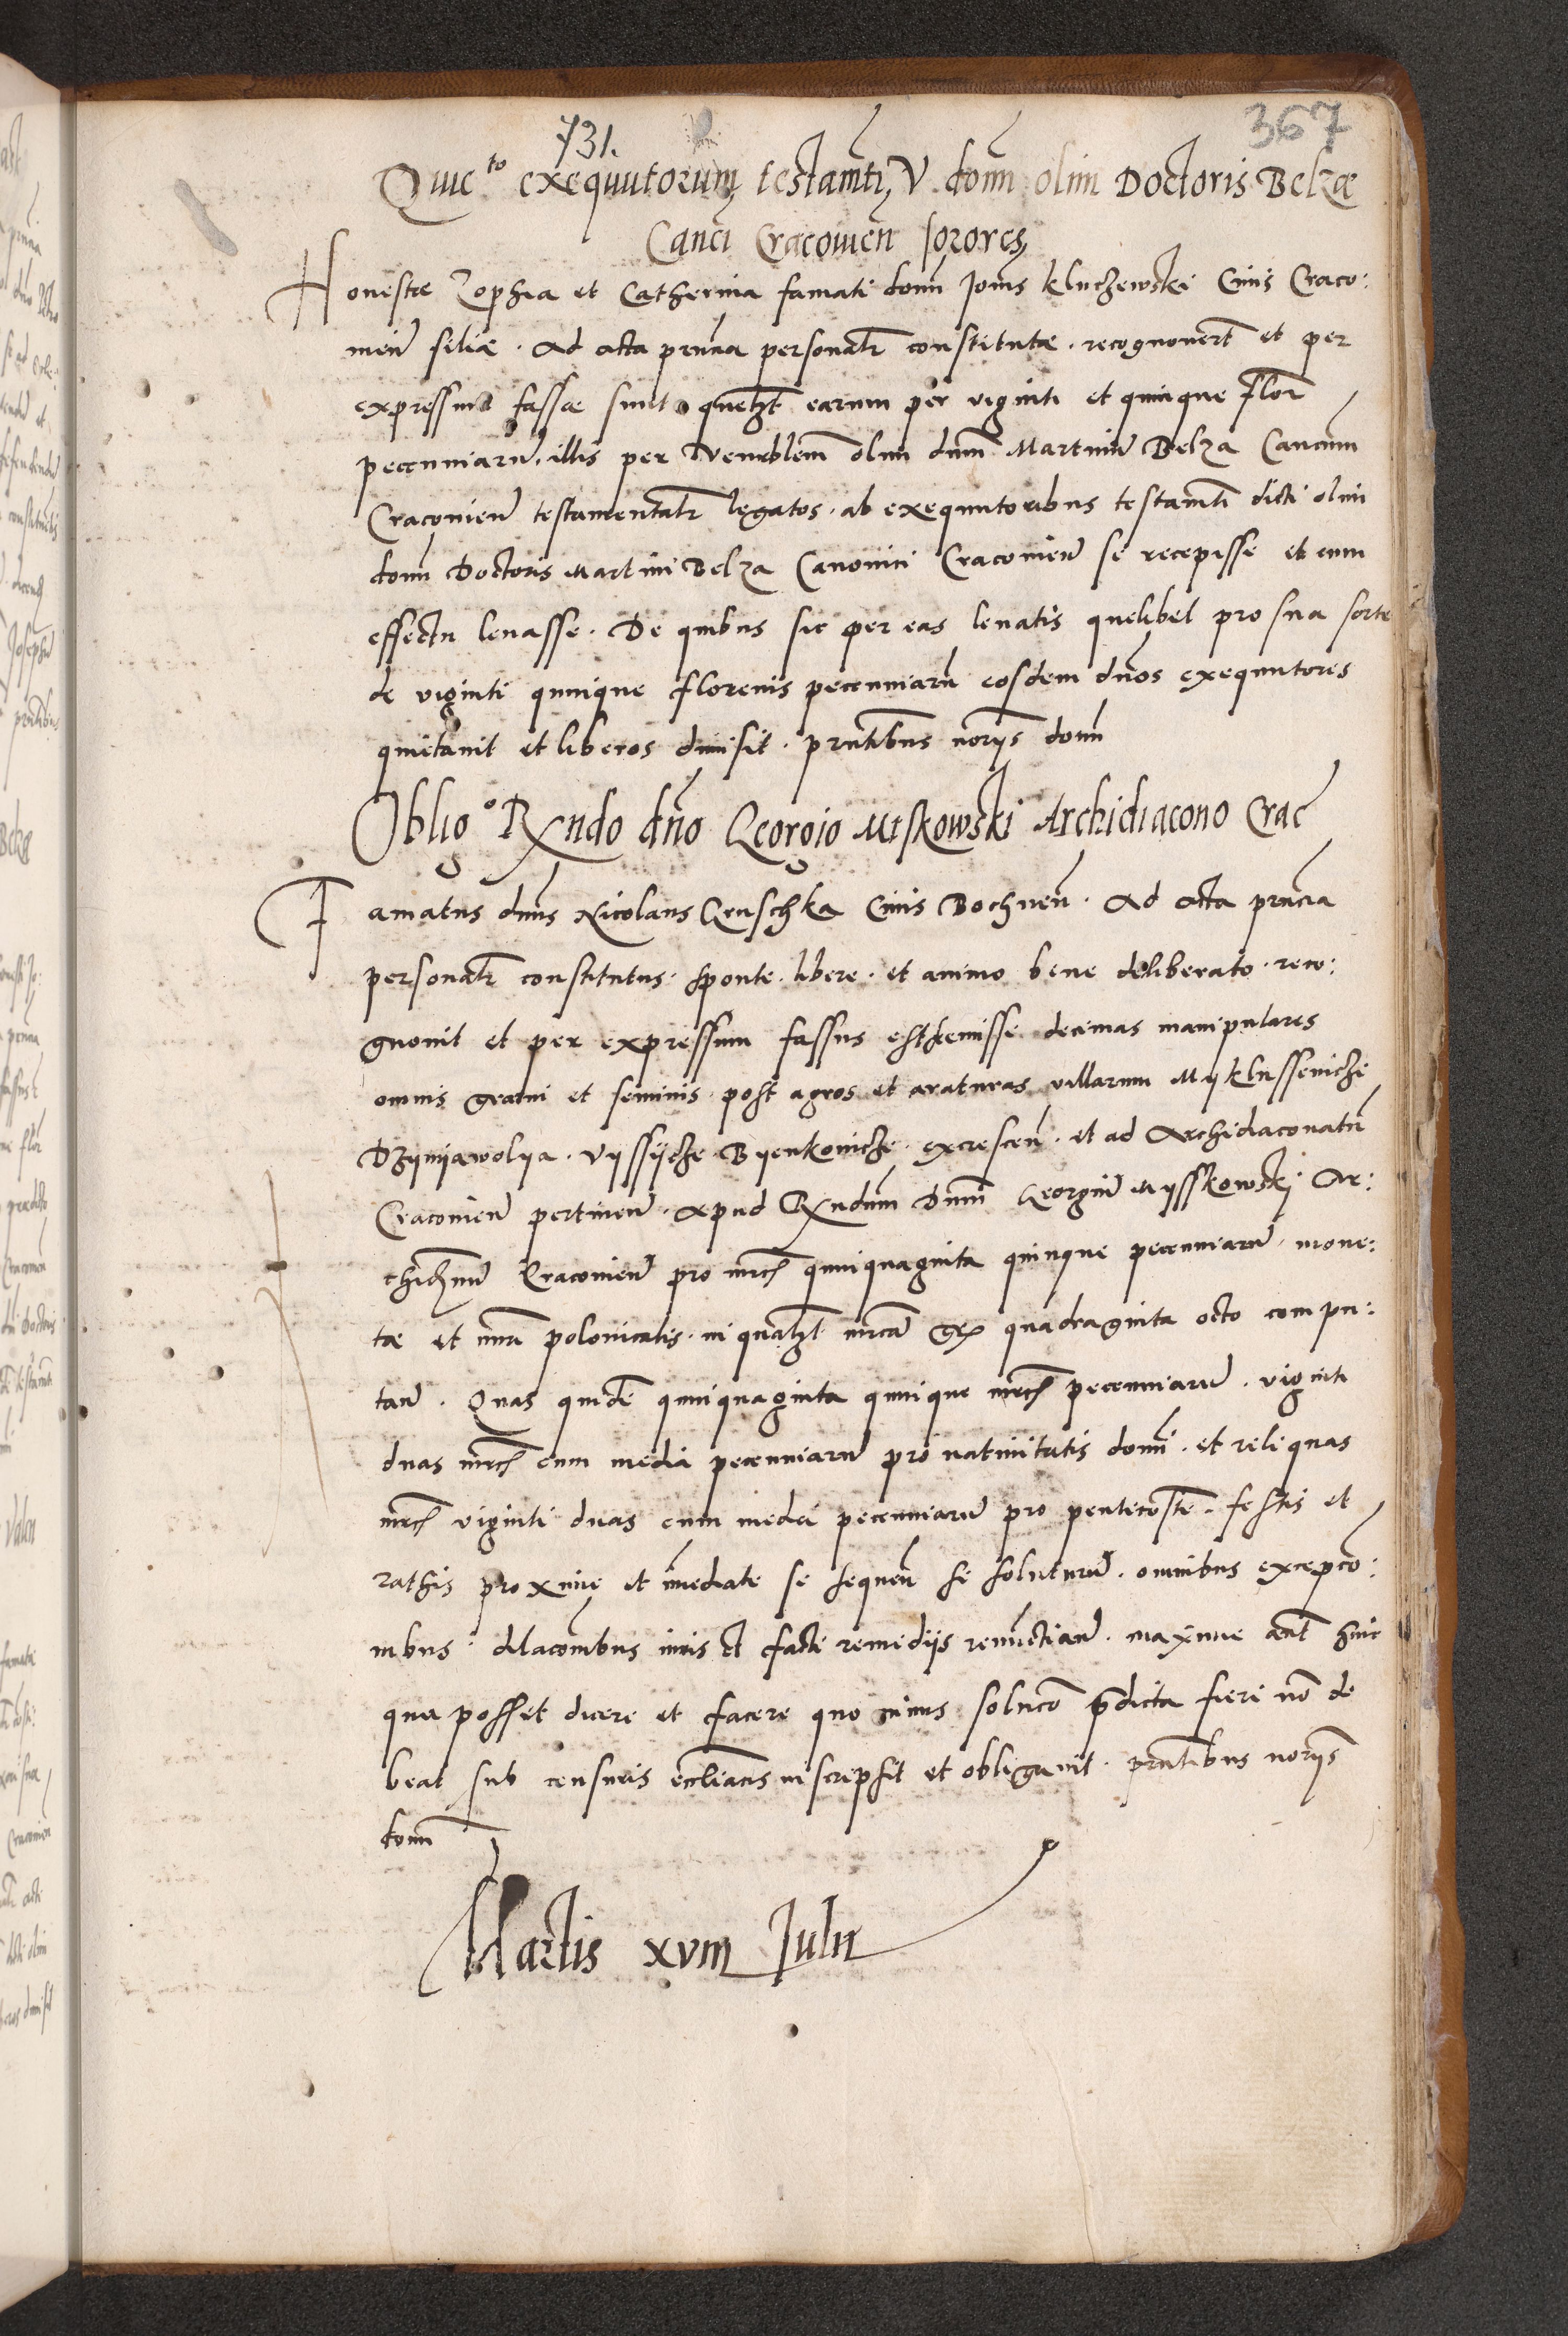 731.
367
Quietō exequutorum testamti V. domi olim Doctoris Belzæ
Canci Cracovien sorores
Honestæ Zophia et Catherina famati domi Joannis Kluchewski Civis Craco:
vien filiæ. Ad acta prñtia personalr constitutæ. recognovert et per
expressum fassæ sunt quelzt earum per viginti et quinque flor
pecunniarū. illis per Venerblem olim dnum Martinū Belza Cancum
Cracovieñ testamentalr legatos. ab exequutoribus testamti dicti olim
domi Doctoris Martini Belza Canonici Cracovieñ se recepisse et cum
effectu levasse. De quibus sic per eas levatis quelibet pro sua sorte
de viginti quinque florenis pecunniarū eosdem dnos exequutores
quietavit et liberos dimisit. prntibus noriis domi
Obligo Rxndo dño Georgio Miskowski Archidiacono Crac
Famatus dnus Nicolaus Gruschka Civis Bochneñ. Ad acta prñtia
personalr constitutus. sponte. libere. et animo bene deliberato. reco:
gnovit et per expressum fassus est emisse decimas manipulares
omnis grani et seminis. post agros et araturas villarum Myklussewiche
Dzywyawolya. Vyssyche. Byenkowiche. excresceñ. et ad Archidiaconatū
Cracovieñ pertineñ. apud Rxndum Dnum Georgiū Mysskowskj Ar:
chidnum Cracovieñ pro mrcs quinquaginta quinque pecunniarū. mone:
tæ et nūri polonicalis. in qualzt mrcā grs quadraginta octo compu:
tañ. Quas quidē quinquaginta quinque mrcs pecunniarū. viginti
duas mrcs cum media pecunniarū pro nativitatis domi. et reliquas
mrcs viginti duas cum media pecunniarū pro penticoste. festis et
rathis proxime et īmediate se sequeñ se soluturū. omnibus excepcō:
nibus. dilacionibus iuris et facti remedijs renūctiañ. maxime añt huic
qua posset dicere et facere quo minus solucō pdicta fieri nō de
beat sub censuris ecclīacis inscripsit et obligavit. prntibus noriis
domi
Martis xviii Julii